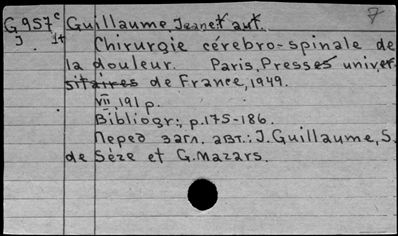 G957c Guillaume, Jean et aut. 7
J. It Chirurgie cérebro-spinale de
la douleur. Paris, Presses univer-
sitaires de France, 1949.
VII, 191 p.
Bibliogr.: p.175-186.
Перед загл. авт.: J. Guillaume, S.
de Sèze et G. Mazars.